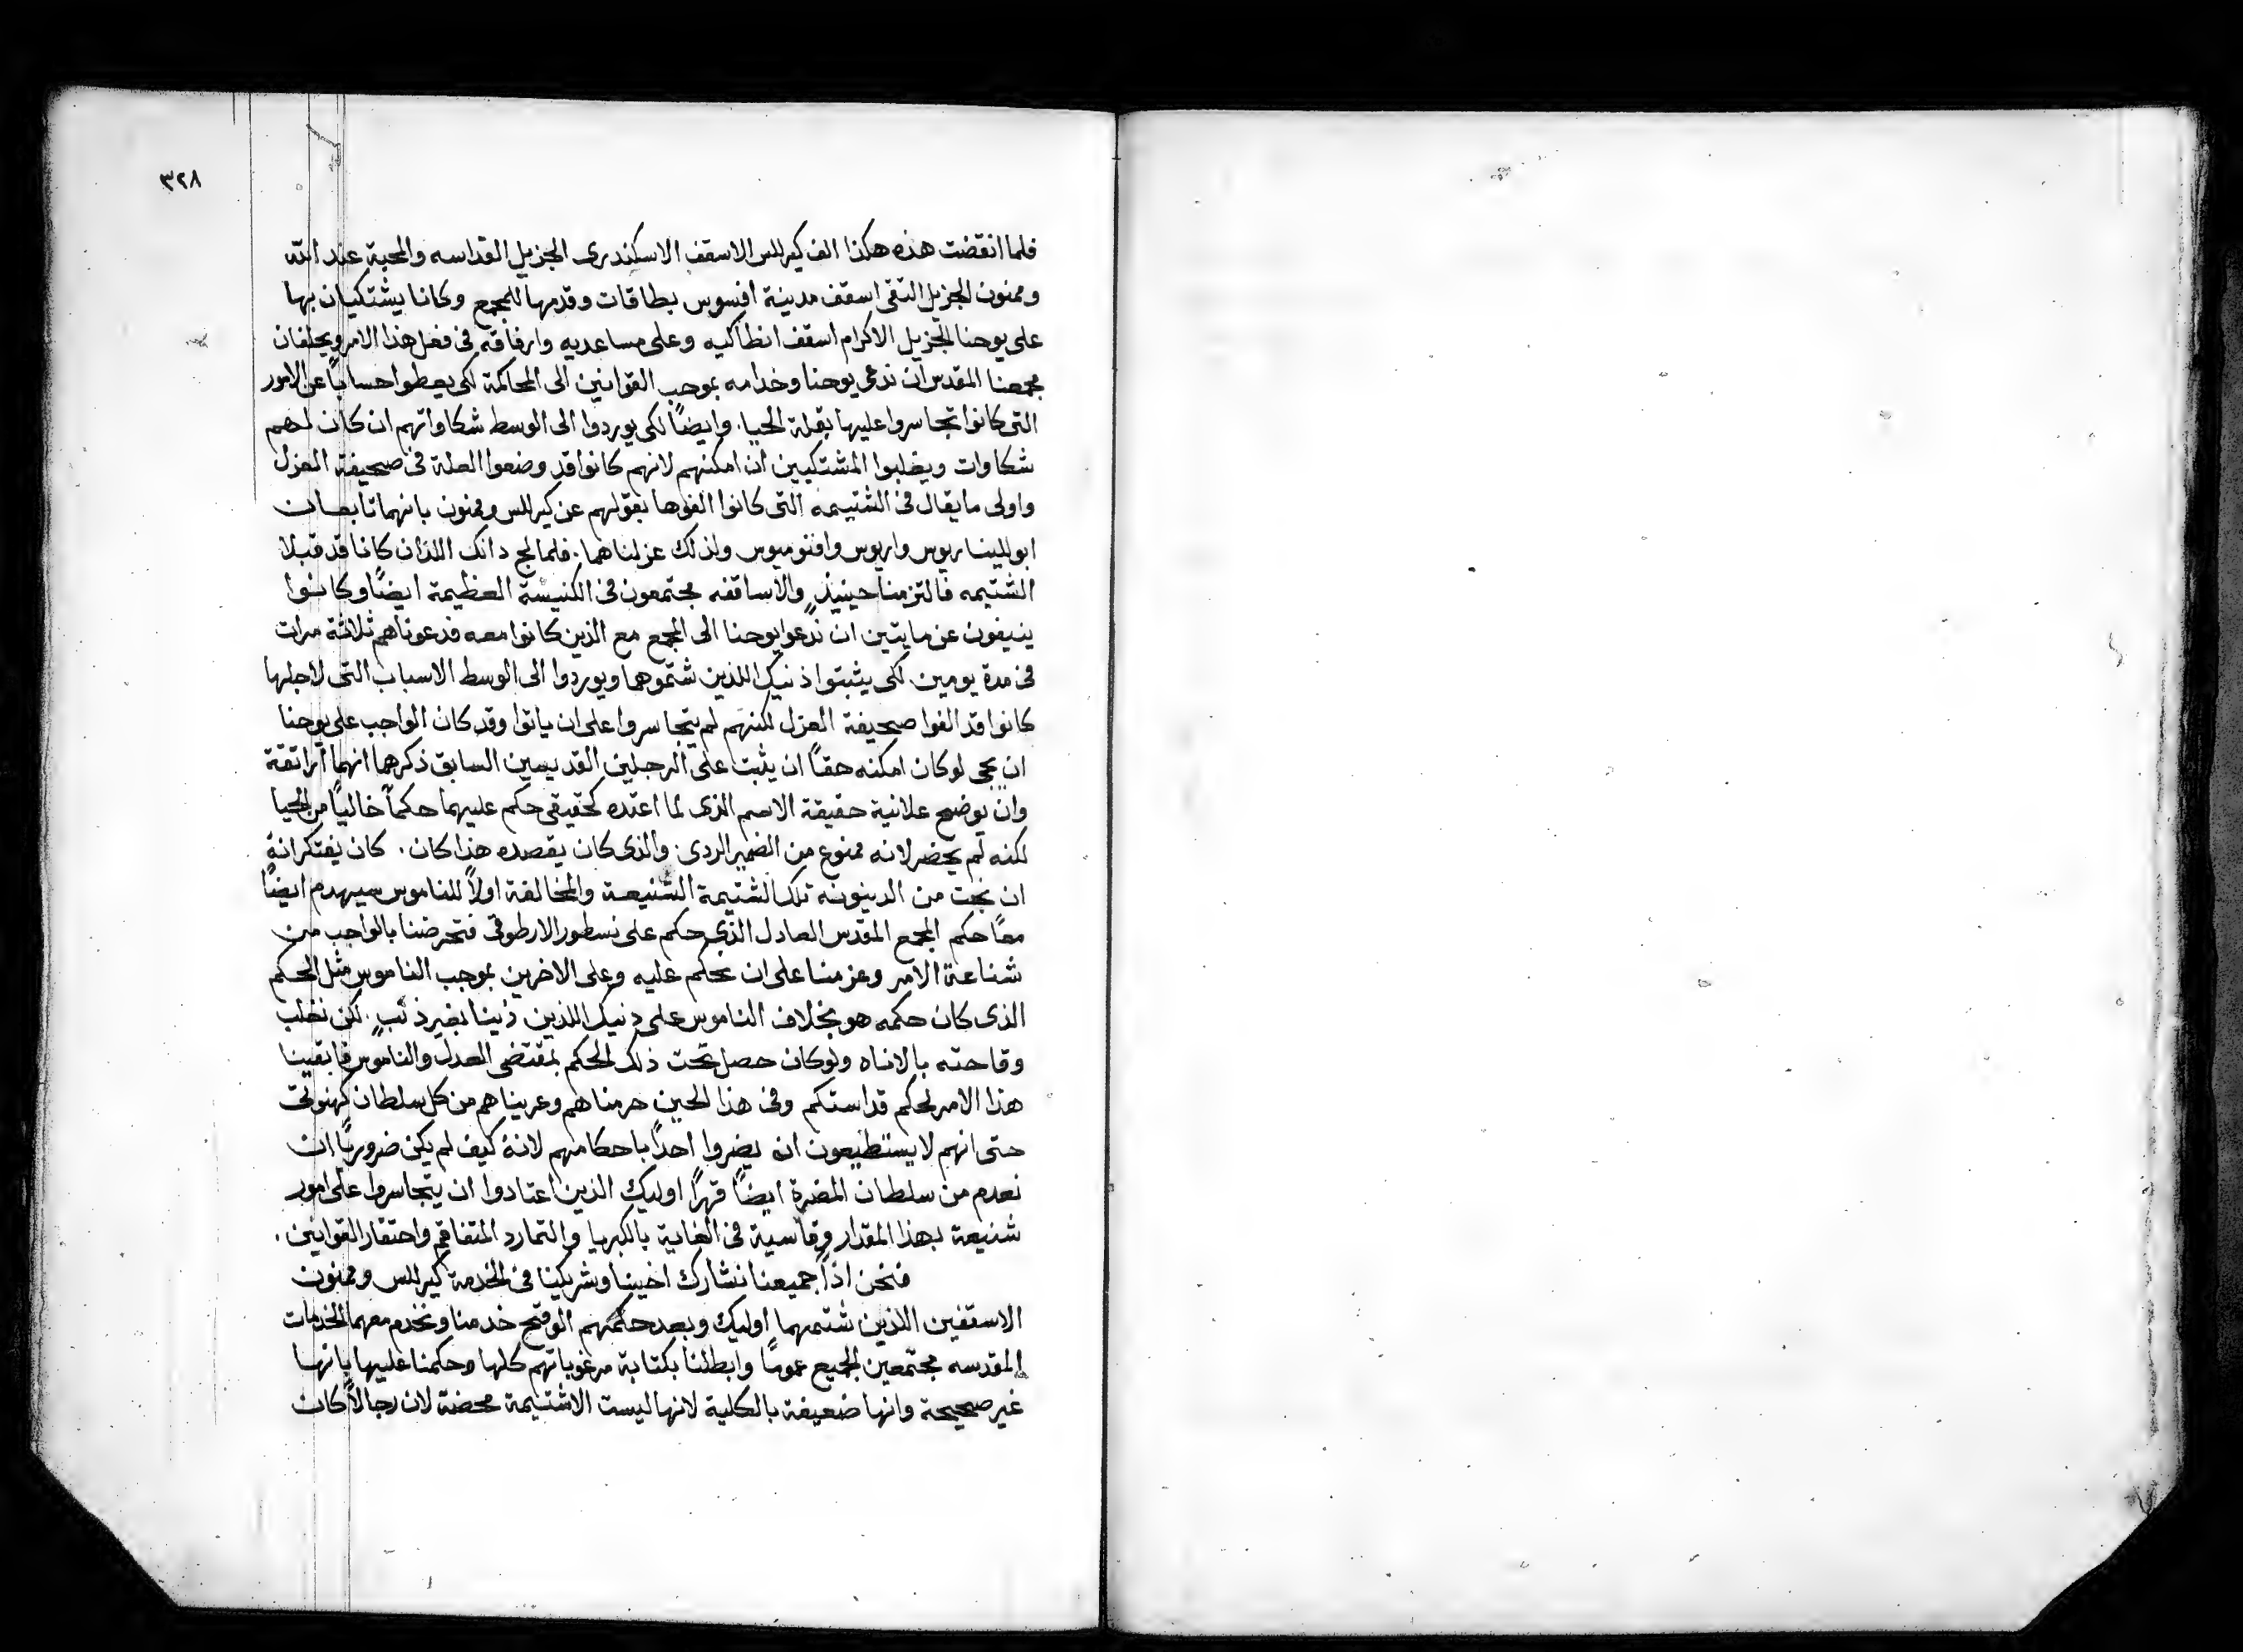 ٣٢٨
فلما انقضت هذه هكذا الف كيرللس الاسقف الاسكندرى الجزيل القداسه والمحبة عند الله
وممنون الجزيل التقى اسقف مدينة افسوس بطاقات وقدمها للمجمع وكانا يشتكيان بها
على يوحنا الجزيل الاكرام اسقف انطاكيه وعلى مساعديه وارفاقه فى فعل هذا الامر ويحلفان
مجمعنا المقدس ان ندعى يوحنا وخدامه بموجب القوانين الى المحاكمة لكى يعطوا حسابًا عن الامور
التى كانوا تجاسروا عليها بقلة الحيا. وايضًا لكى يوردوا الى الوسط شكاواتهم ان كان لهم
شكاوات ويغلبوا المشتكيين ان امكنهم لانهم كانوا قد وضعوا العلة فى صحيفة العزل
واولى ما يقال فى الشتيمه التى كانوا الفوها بقولهم عن كيرللس وممنون بانهما تابعان
ابولليناريوس واريوس وافنوميوس ولذلك عزلناهما. فلما لج دانك اللذان كانا قد قبلا
الشتيمه فالتزمنا حينيذٍ والاساقفه مجتمعون فى الكنيسة العظيمة ايضًا وكانوا
ينيفون عن مايتين ان ندعوا يوحنا الى المجمع مع الذين كانوا معه فدعوناهم ثلاثة مرات
فى مدة يومين لكى يثبتوا ذنيك اللذين شتموهما ويوردوا الى الوسط الاسباب التى لاجلها
كانوا قد الفوا صحيفة العزل لكنهم لم يتجاسروا على ان ياتوا وقد كان الواجب على يوحنا
ان يجى لو كان امكنه حقًا ان يثبت على الرجلين القديسين السابق ذكرهما انهما اراتقة
وان يوضح علانية حقيقة الاسم الذى لما اعتده كحقيقى حكم عليهما حكمًا خاليًا من الحيا
لكنه لم يحضر لانه ممنوع من الضمير الردى. والذى كان يقصده هذا كان. كان يفتكر انه
ان نجت من الدينونه تلك الشتيمة الشنيعة والمخالفة اولاً للناموس سيهدم ايضًا
معًا حكم المجمع المقدس العادل الذى حكم على نسطور الارطوقى فتحرضنا بالواجب من
شناعة الامر وعزمنا على ان نحكم عليه وعلى الاخرين بموجب الناموس مثل الحكم
الذى كان حكمه هو بخلاف الناموس على دنيك اللذين ذينا بغير ذنبٍ. لكن نغلب
وقاحته بالاناه ولو كان حصل تحت ذلك الحكم بمقتضى العدل والناموس فابقينا
هذا الامر لحكم قداستكم وفى هذا الحين حرمناهم وعريناهم من كل سلطان كهنوتى
حتى انهم لا يستطيعون ان يضروا احدًا باحكامهم لانه كيف لم يكن ضروريًا ان
نعدم من سلطان المضرة ايضًا قهرًا اوليك الذين اعتادوا ان يتجاسروا على امور
شنيعة بهذا المقدار وقاسية فى الغاية بالكبريا والتمارد المتفاقم واحتقار القوانين.
فنحن اذًا جميعنا نشارك اخينا وشريكينا فى الخدمة كيرللس وممنون
الاسقفين اللذين شتمهما اوليك وبعد حكمهم الوقح خدمنا ونخدم معهما الخدمات
المقدسه مجتمعين الجميع عمومًا وابطلنا بكتابة مرغوباتهم كلها وحكمنا عليها بانها
غير صحيحة وانها ضعيفة بالكلية لانها ليست الا شتيمة محضة لان رجالاً كان